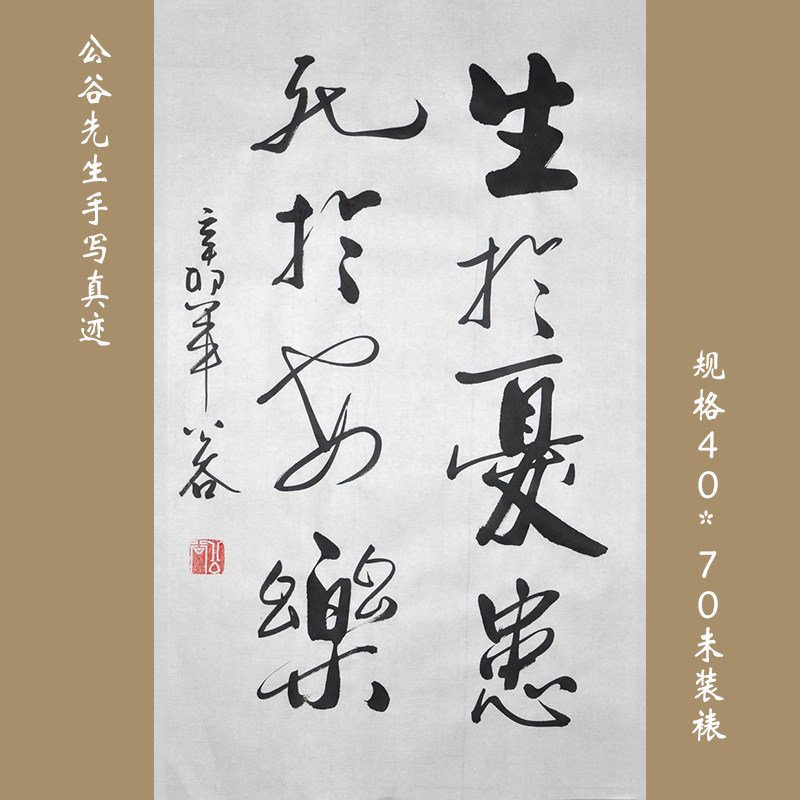 公谷先生手写真迹
生於憂患
死於安樂
辛卯年 公谷
规格40*70未装裱